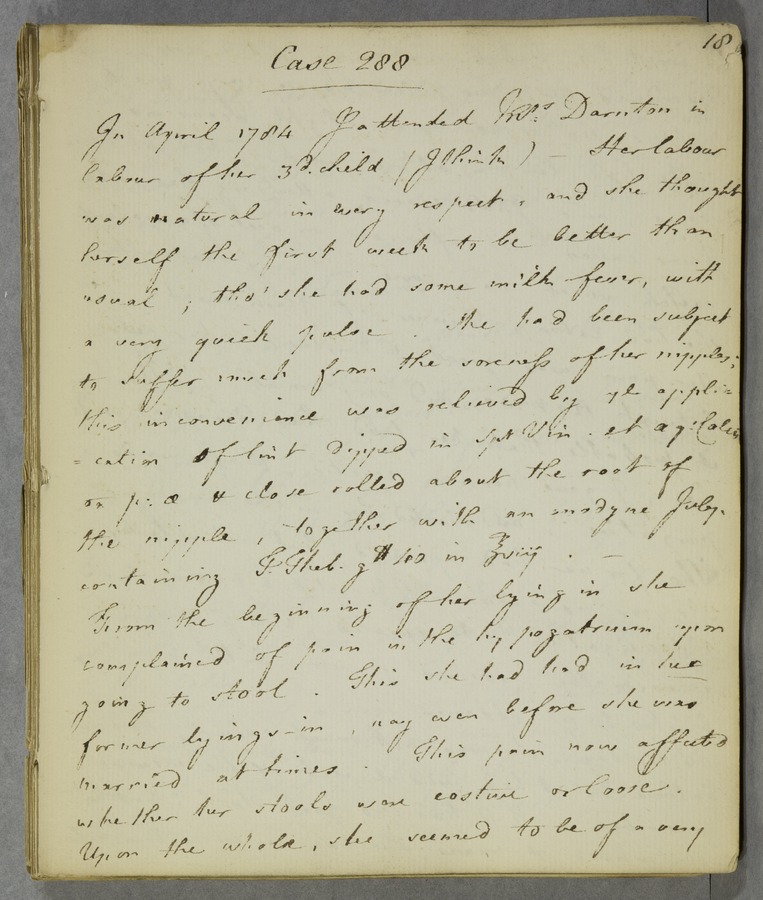 18
Case 288
In April 1784 I attended Mrs. Darnton in
labour of her 3d. child (I think) – Her labour
was natural in every respect, and she thought
herself the first week to be better than
usual; tho' she had some milk fever, with
a very quick pulse. She had been subject
to suffer much from the soreness of her nipples;
this inconvenience was relieved by ye appli=
=cation of lint dipped in Spt Vin. et aq: Calcis
p: æ & close rolled about the root of
the nipple, together with an anodyne Julep.
containing T. Theb. gtt 40 in ℥viij. –
From the beginning of her lying in she
complained of pain in the hypogatrium upon
going to stool. This she had had in her
former lyings-in, nay even before she was
married at times. This pain now affected
whether her stools were costive or loose.
Upon the whole, she seemed to be of a very